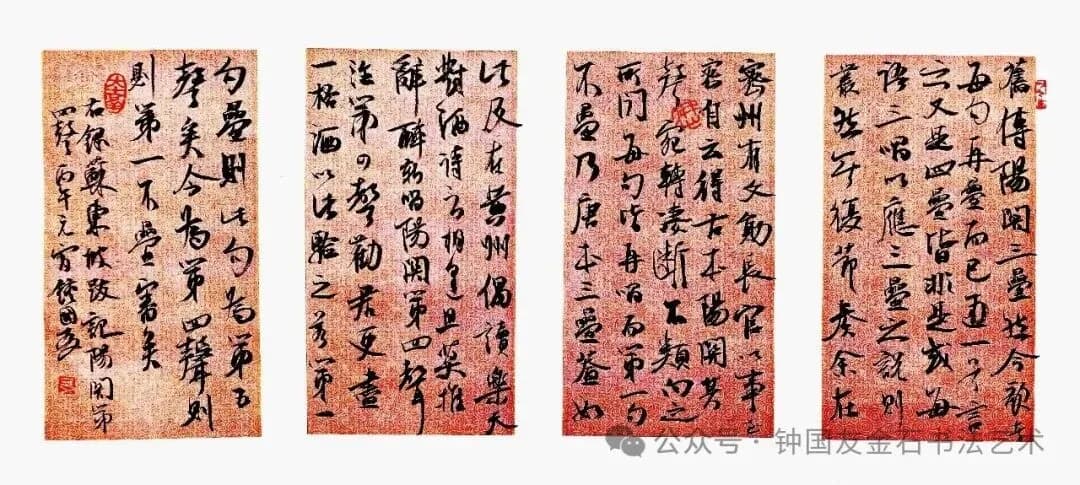 舊傳陽關三疊然今歌者
每句再疊而已通一首言
之又是四疊皆非是或每
語三唱以應三疊之說則
叢然無復節奏余在
密州有文勛長官以事至
密自云得古本陽關其
聲宛轉淒斷不類向之
所聞每句皆再唱而第一句
不疊乃唐本三疊蓋如
此及在黃州偶讀樂天
對酒詩云相逢且莫推
辭醉聽唱陽關第四聲
注第四聲勸君更盡
一杯酒以此驗之若第一
句疊則此句為第五
聲矣今為第四聲則
則第一不疊審矣
右錄蘇東坡跋記陽關第
四聲丙午元宵鍾國友
公众号·钟国友金石书法艺术